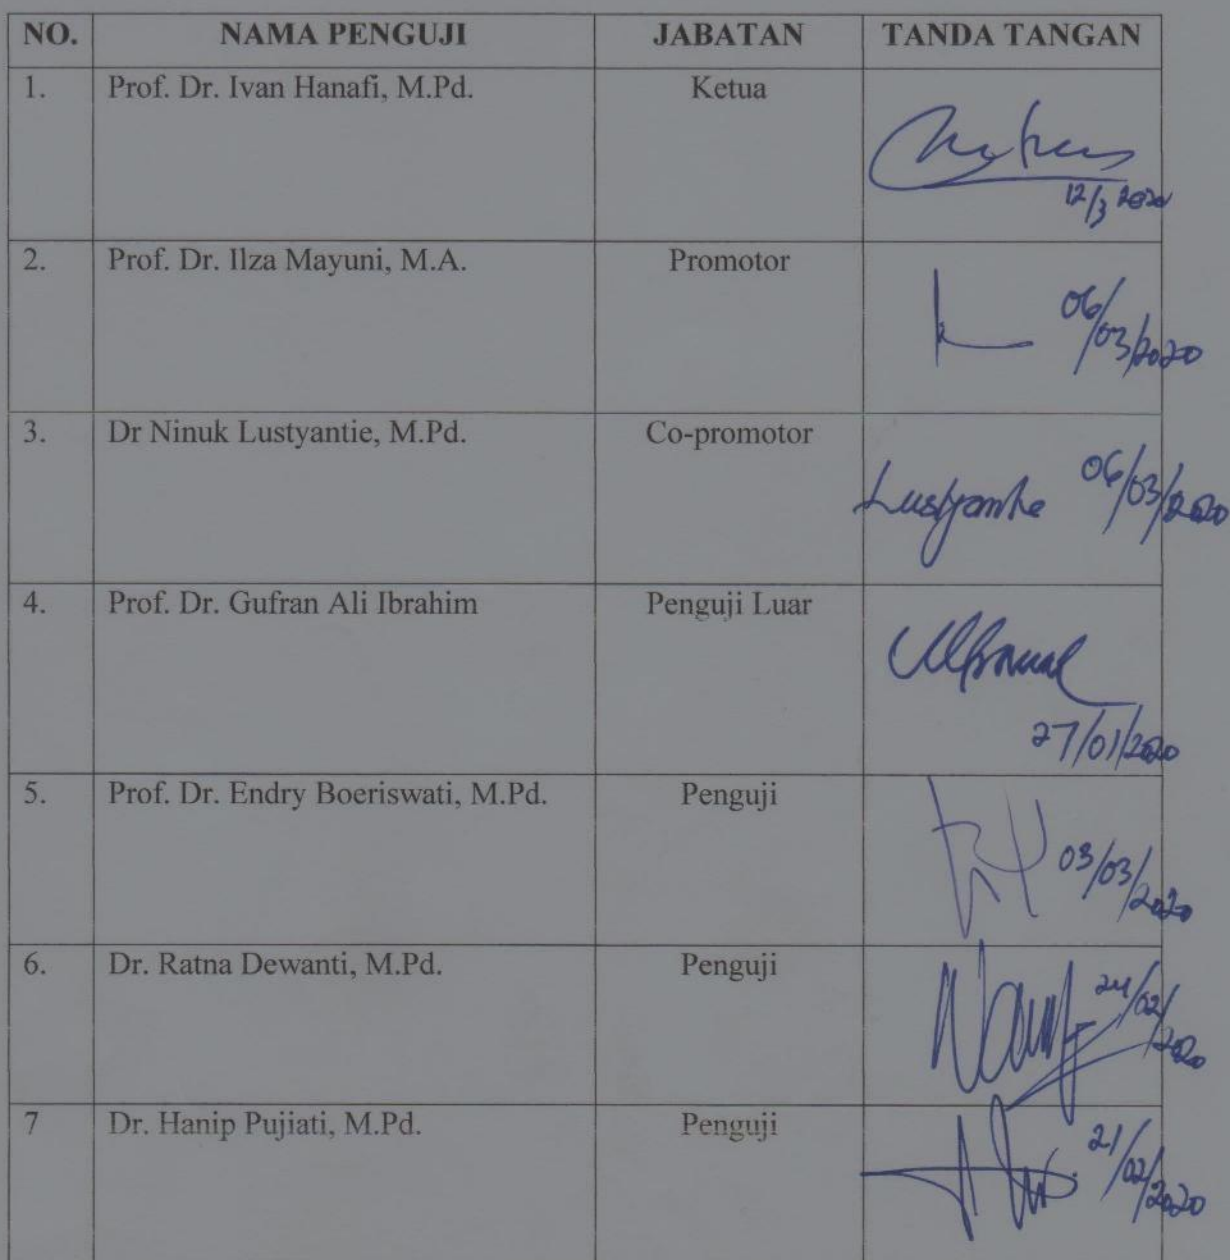 NO. NAMA PENGUJI JABATAN TANDA TANGAN
1. Prof. Dr. Ivan Hanafi, M.Pd. Ketua
12/3 2020
2. Prof. Dr. Ilza Mayuni, M.A. Promotor
06/03/2020
3. Dr Ninuk Lustyantie, M.Pd. Co-promotor
Lustyantie 06/03/2020
4. Prof. Dr. Gufran Ali Ibrahim Penguji Luar
27/01/2020
5. Prof. Dr. Endry Boeriswati, M.Pd. Penguji
03/03/2020
6. Dr. Ratna Dewanti, M.Pd. Penguji
24/02/2020
7 Dr. Hanip Pujiati, M.Pd. Penguji
21/02/2020